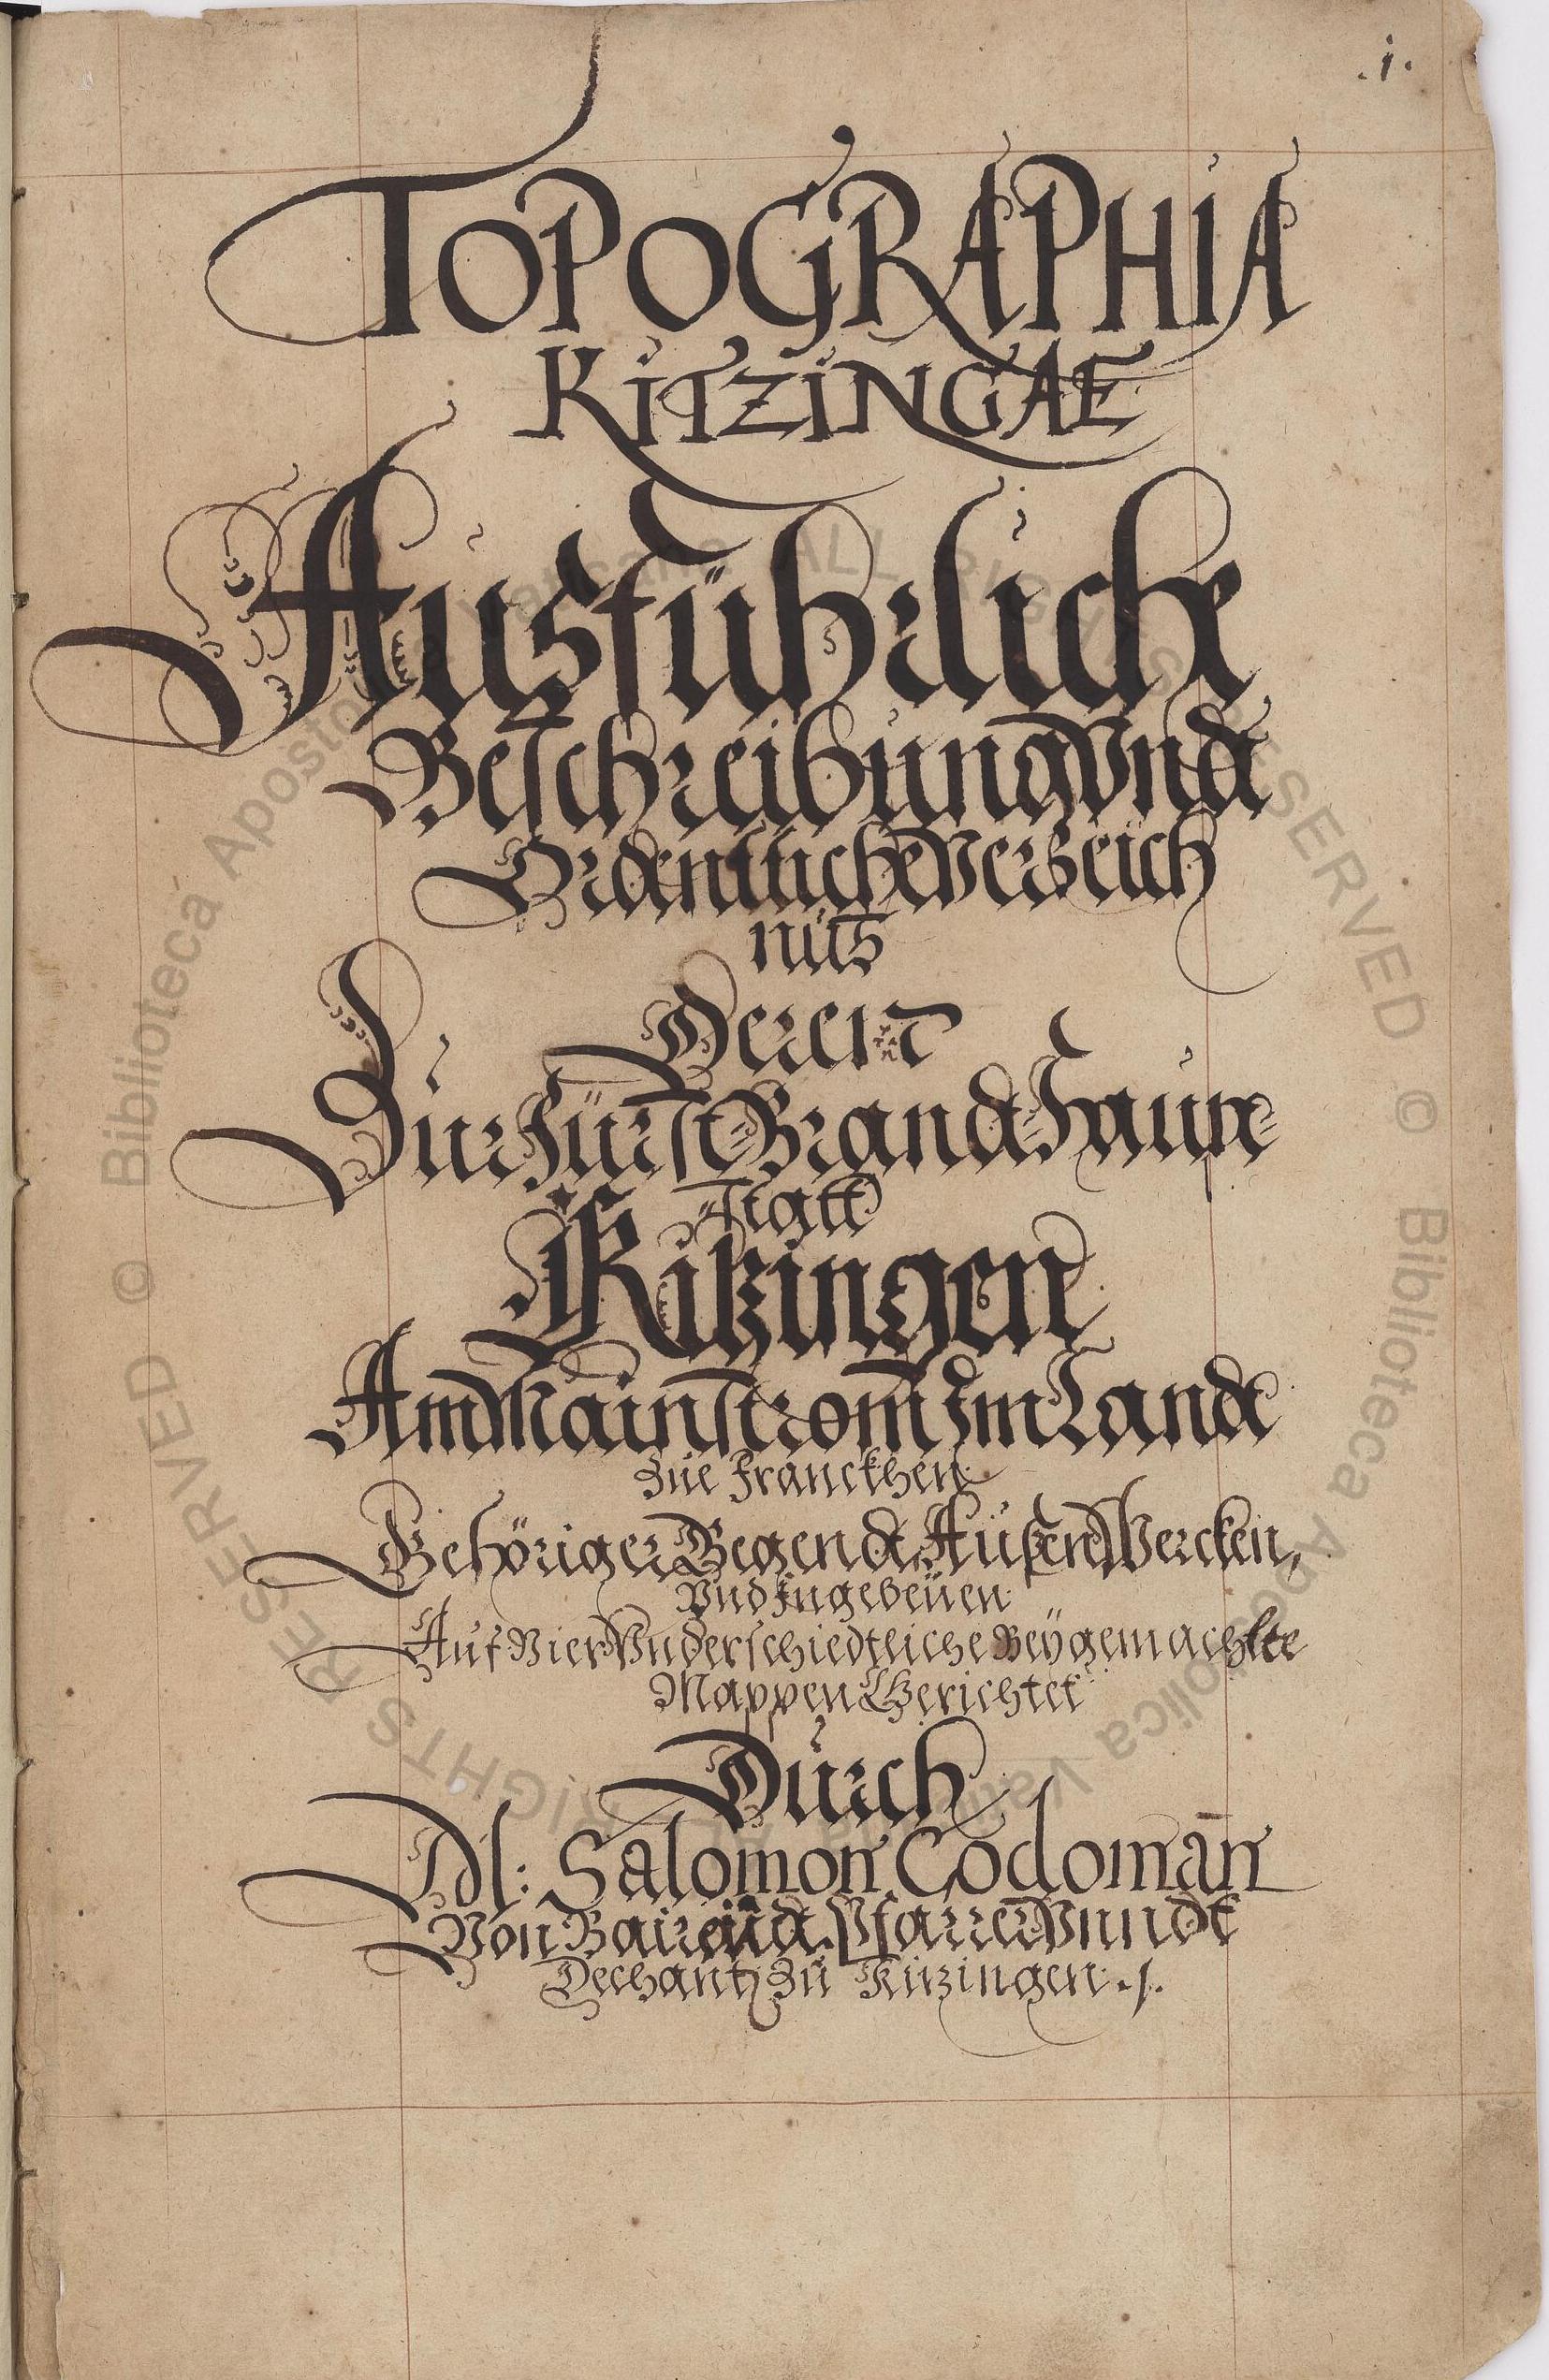 .1.
TOPOGRAPHIA
KITZINGAE
Ausführliche
Beschreibung Vndt
Ordentliche Verzeich
nus
Deren
Zur Fürst: Brand: Haupt=
statt
Kitzingen
Am Mainstrom Im Landt
Zue Franckhen
Gehöriger Gegendt, Außen Wercken,
Vnd Ingebeüen
Auf Vier Vnderschiedtliche Beÿgemachte
Mappen Gerichtet
Durch
M: Salomon Codoman
Von Baireüdt. Pfarrer Vnndt
Dechant Zu Kitzingen ./.
© Biblioteca Apostolica Vaticana ALL RIGHTS RESERVED
© Biblioteca Apostolica Vaticana ALL RIGHTS RESERVED